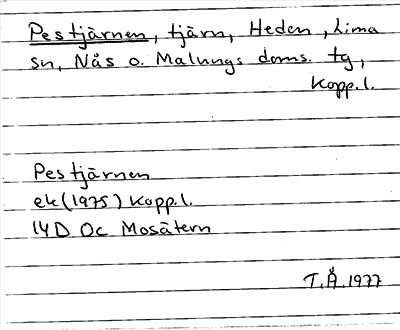 Pestjärnen, tjärn, Heden, Lima
sn, Nås o. Malungs doms. tg,
Kopp.l.
Pestjärnen
ek(1975) Kopp.l.
14D Oc Mosätern
T.Å.1977